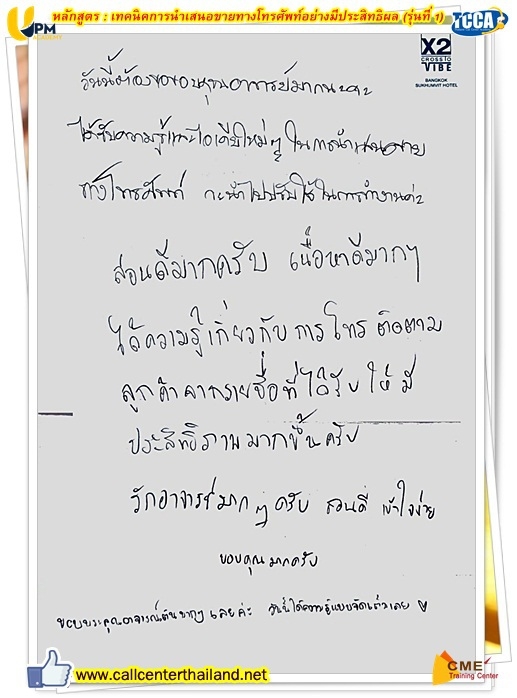 หลักสูตร : เทคนิคการนำเสนอขายทางโทรศัพท์อย่างมีประสิทธิผล (รุ่นที่ 1)
UPM
ACADEMY
TCCA
X2
CROSSTO
VIBE
BANGKOK
SUKHUMVIT HOTEL
วันนี้ต้องขอขอบคุณอาจารย์มากนะคะ
ได้รับความรู้และไอเดียใหม่ๆ ในการนำเสนอขาย
ทางโทรศัพท์ จะนำไปปรับใช้ในการทำงานค่ะ
สอนดีมากครับ เนื้อหาดีมากๆ
ได้ความรู้เกี่ยวกับการโทรติดตาม
ลูกค้าจากรายชื่อที่ได้รับ ให้มี
ประสิทธิภาพมากขึ้นครับ
รักอาจารย์มากๆ ครับ สอนดี เข้าใจง่าย
ขอบคุณมากครับ
ขอบพระคุณอาจารย์ มากๆ เลยค่ะ วันนี้ได้ความรู้แบบจัดเต็มเลย
www.callcenterthailand.net
CME
Training Center